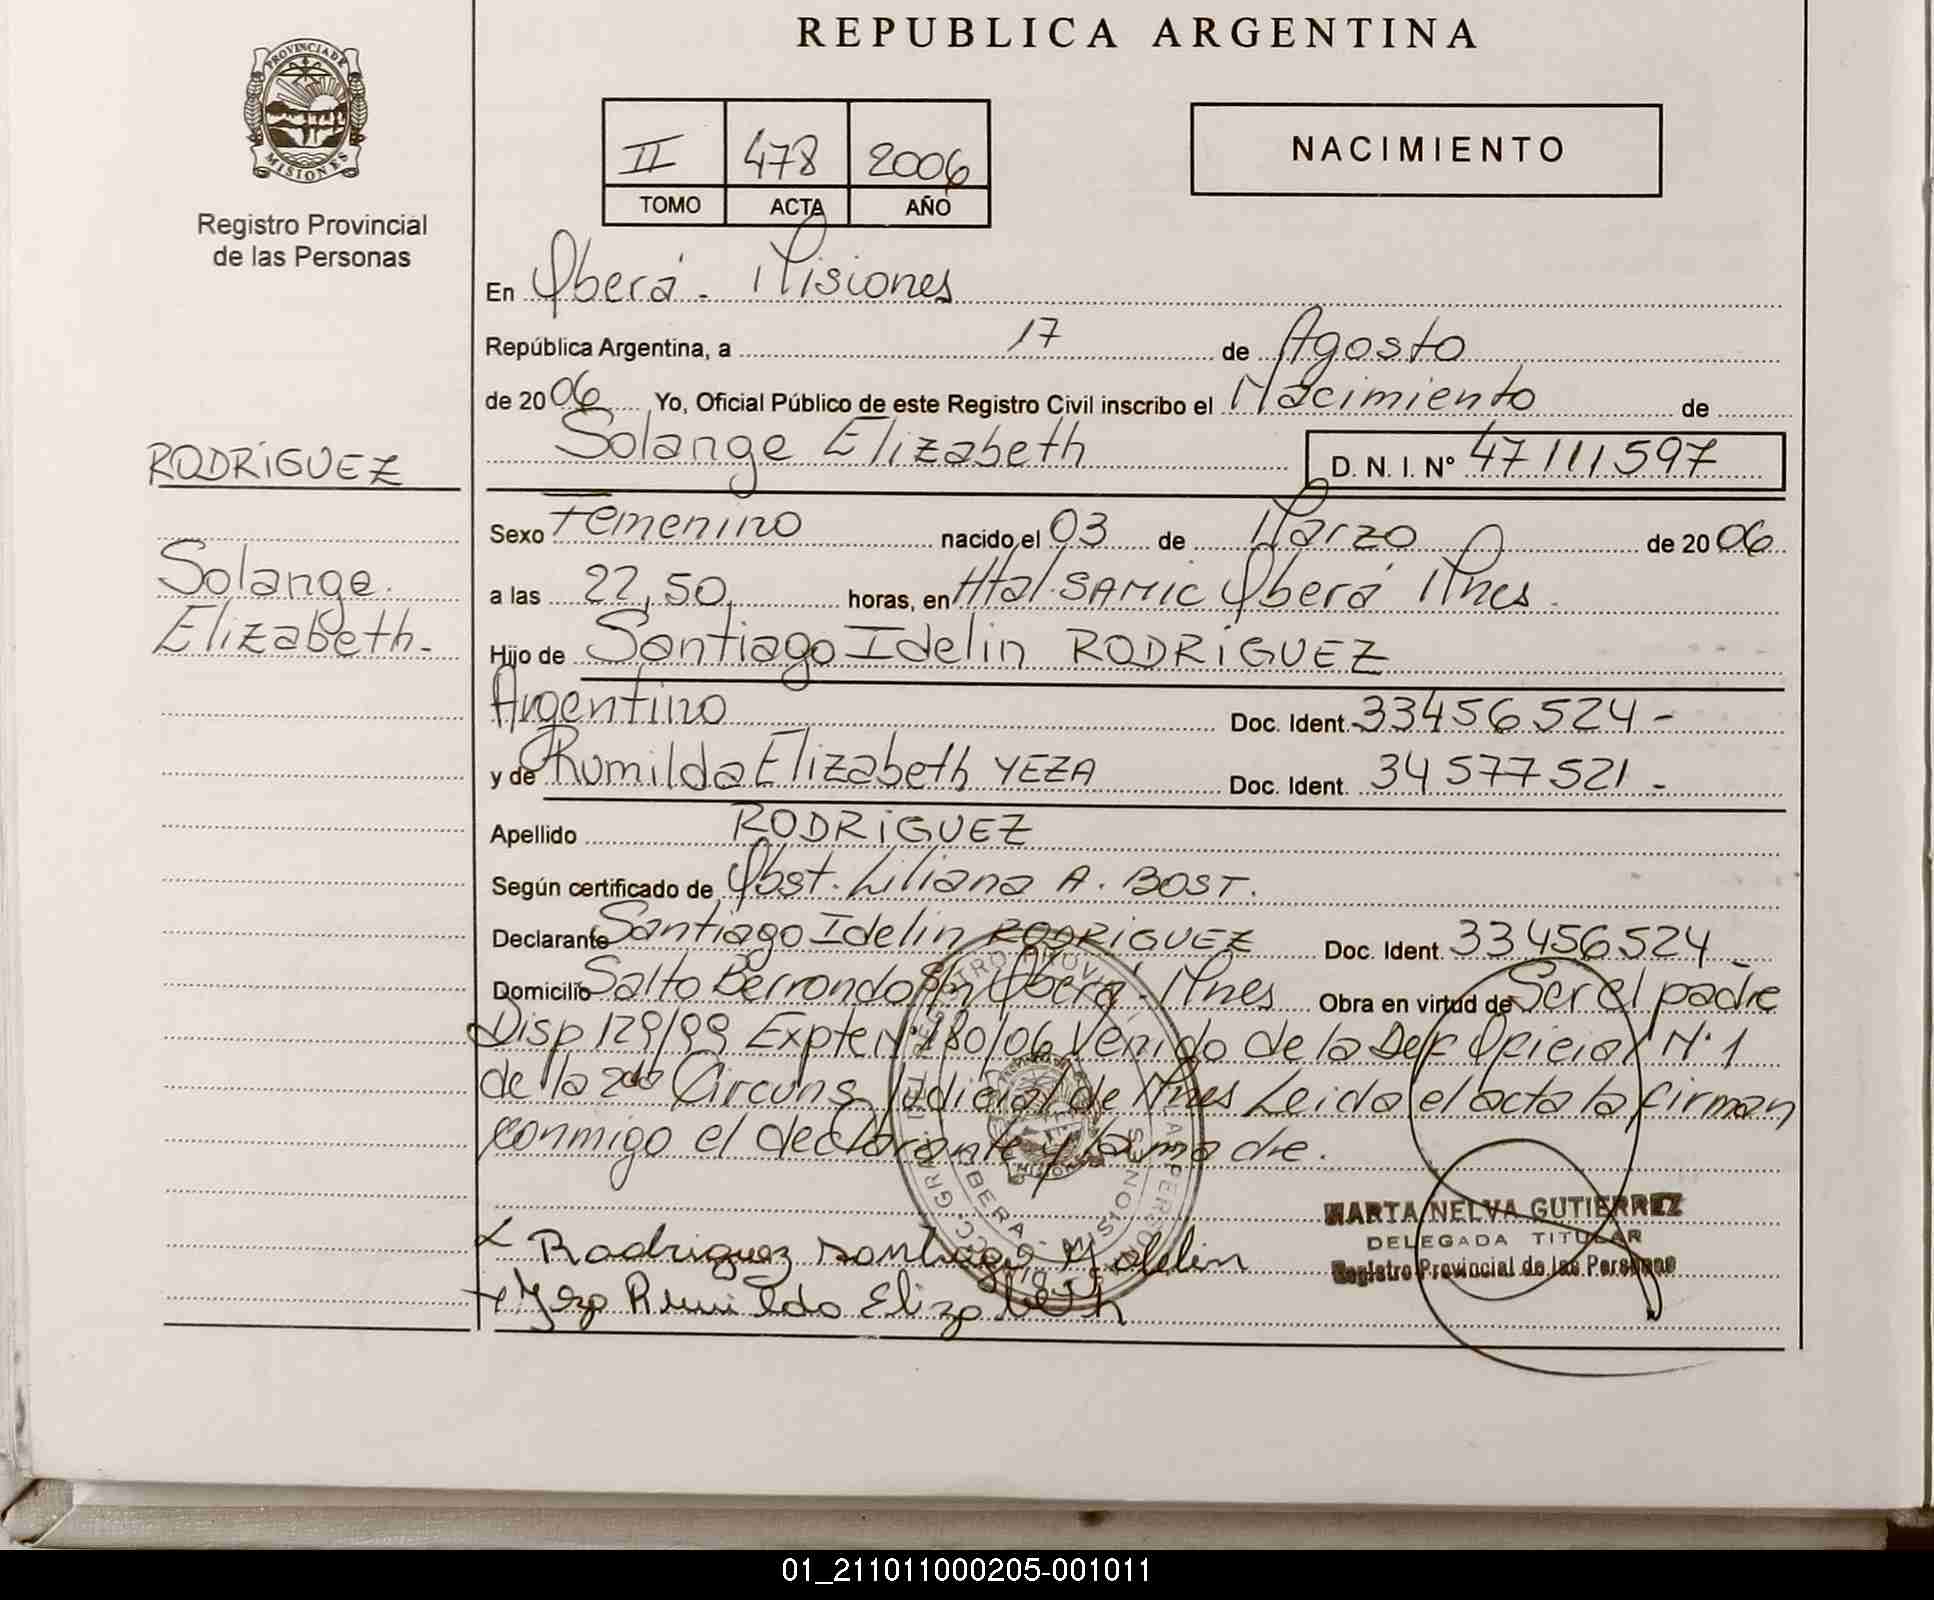 REPUBLICA ARGENTINA
PROVINCIA DE MISIONES
Registro Provincial
de las Personas
II 478 2006
TOMO ACTA AÑO
NACIMIENTO
En Oberá - Misiones
República Argentina, a 17 de Agosto
de 2006 Yo, Oficial Público de este Registro Civil inscribo el Nacimiento de
Solange Elizabeth D. N. I. N° 47111597
RODRIGUEZ
Solange
Elizabeth.-
Sexo Femenino nacido el 03 de Marzo de 2006
a las 22,50 horas, en Htal. SAMIC Oberá Mnes.
Hijo de Santiago Idelin RODRIGUEZ
Argentino Doc. Ident. 33456524-
y de Rumilda Elizabeth YEZA Doc. Ident. 34577521.-
Apellido RODRIGUEZ
Según certificado de Obst. Liliana A. BOST.
Declarante Santiago Idelin RODRIGUEZ Doc. Ident. 33456524-
Domicilio Salto Berrondo Oberá. Mnes Obra en virtud de Ser el padre
Disp 129/99 Expte N° 180/06 Venido de la Def Oficial N° 1
de la 2da Circuns Judicial de Mnes Leida el acta la firman
conmigo el declarante y la madre.
Rodriguez Santiago Ydelin
Yeza Rumildo Elizabeth
MARTA NELVA GUTIERREZ
DELEGADA TITULAR
Registro Provincial de las Personas
OBERA - MISIONES
01_211011000205-001011